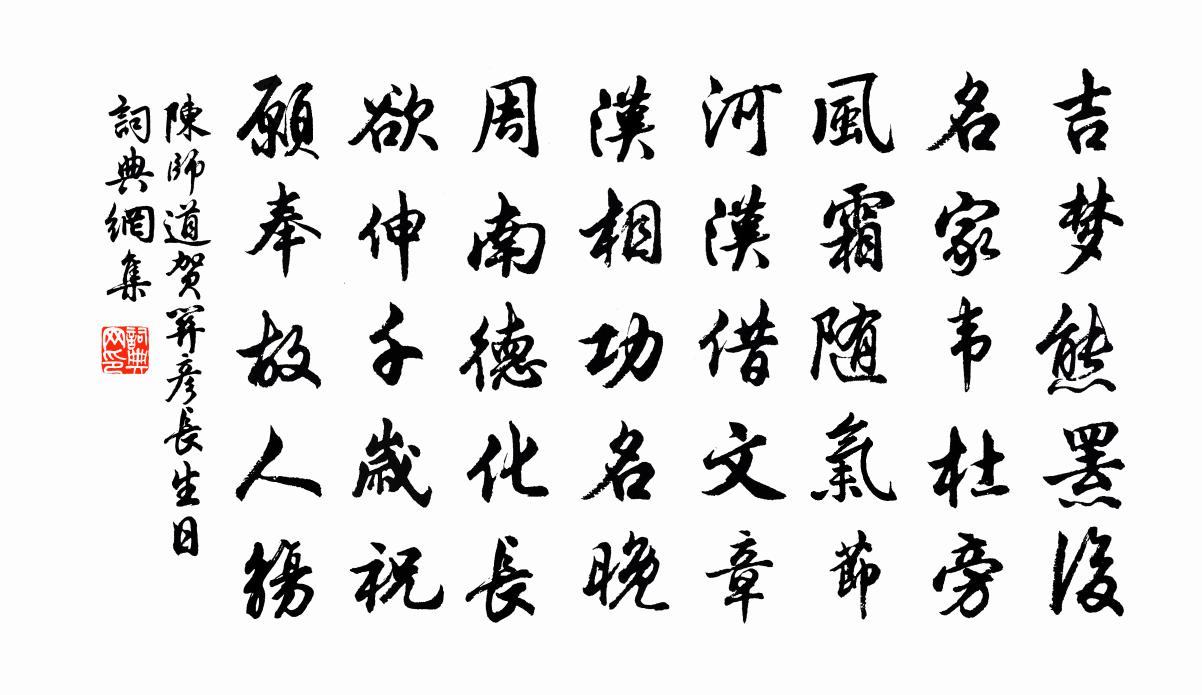 吉梦熊罴後
名家韦杜旁
風霜随氣節
河漢借文章
漢相功名晚
周南德化長
欲伸千歲祝
願奉故人觴
陳師道贺關彦長生日
詞典網集
詞典网印